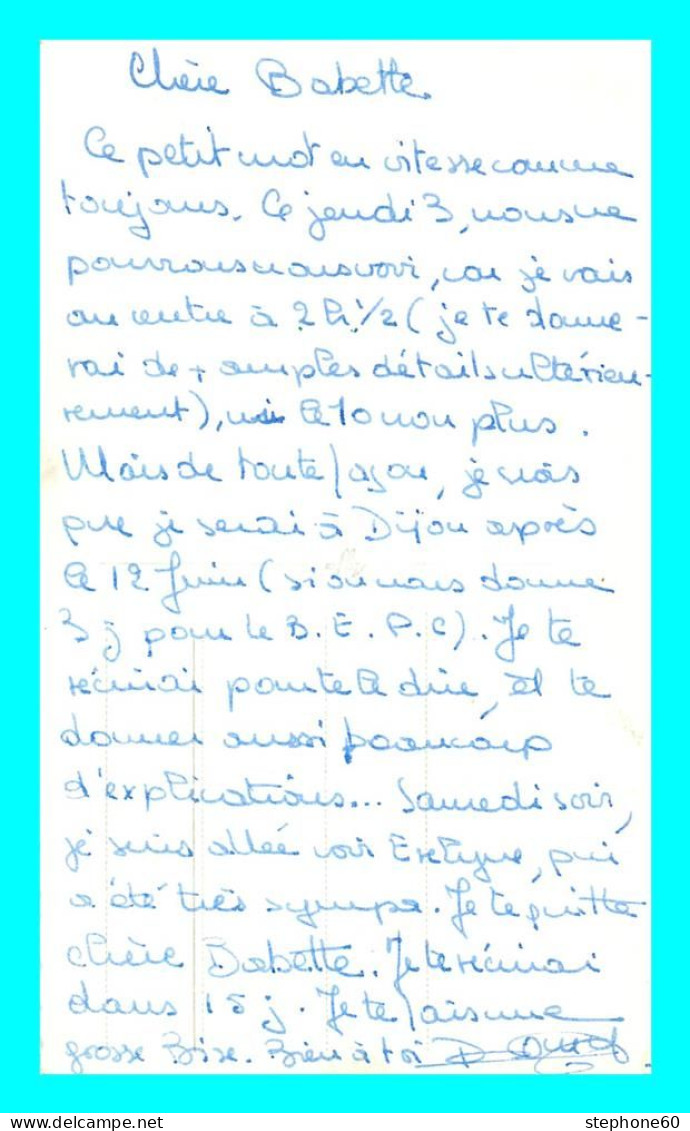 Chère Babette
Ce petit mot en vitesse comme
toujours. Ce jeudi 3, nous ne
pourrons nous voir, car je vais
au centre à 2h 1/2 (je te donne-
rai de + amples détails ultérieu-
rement), ni le 10 non plus.
Mais de toute façon, je crois
que je serai à Dijon après
le 12 Juin (si on nous donne
3 j pour le B.E.P.C). Je te
récrirai pour te le dire, et te
donner aussi beaucoup
d'explications... Samedi soir,
je suis allée voir Evelyne, qui
a été très sympa. Je te quitte
chère Babette. Je te récrirai
dans 15 j. Je te fais une
grosse Bise. Bien à toi
stephone60